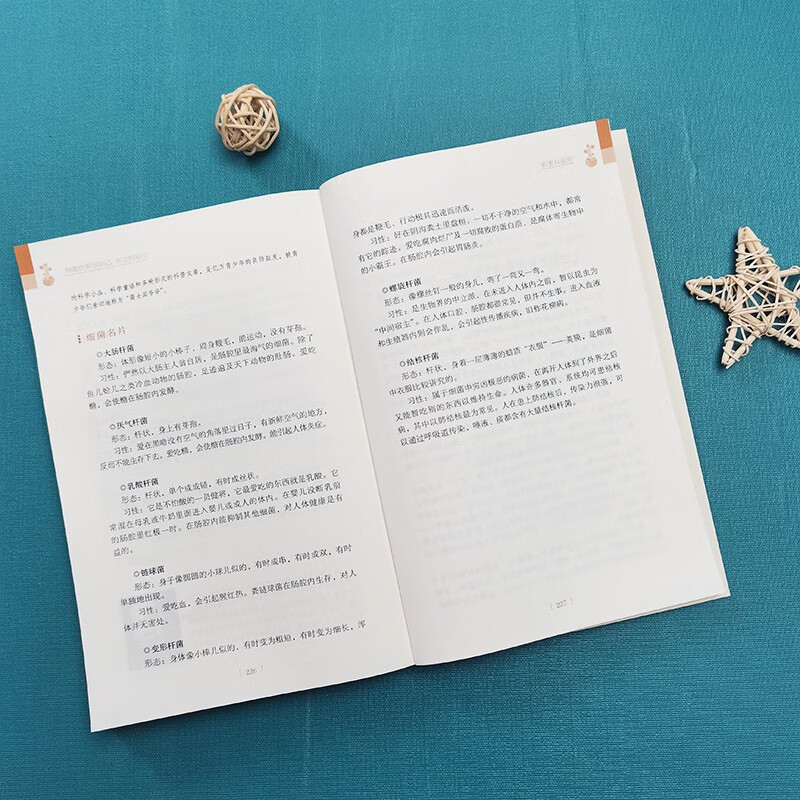 的科学小品、科学童话和多种形式的科普文章，是亿万青少年的良师益友，被青
少年们亲切地称为“高士其爷爷”。
细菌名片
◎大肠杆菌
形态：体形像短小的小棒子，周身鞭毛，能运动，没有芽孢。
习性：俨然以大肠主人翁自居，是肠腔里最淘气的细菌。除了
鱼儿蛤儿之类冷血动物的肠腔，足迹遍及天下动物的肚肠。爱吃
糖，会使糖在肠腔内发酵。
◎厌气杆菌
形态：杆状，身上有芽孢。
习性：爱在黑暗没有空气的角落里过日子，有新鲜空气的地方，
反而不能生存下去。爱吃糖，会使糖在肠腔内发酵。能引起人体炎症。
◎乳酸杆菌
形态：杆状，单个成或链，有时成丝状。
习性：它是不怕酸的一员健将，它最爱吃的东西就是乳酸。它
常混在母乳或牛奶里面进入婴儿或成人的体内。在婴儿没断乳前
的肠腔里红极一时。在肠腔内能抑制其他细菌，对人体健康是有
益的。
◎链球菌
形态：身子像圆圆的小球儿似的，有时成串，有时成双，有时
单独地出现。
习性：爱吃血，会引起猩红热。粪链球菌在肠腔内生存，对人
体并无害处。
◎变形杆菌
形态：身体像小棒儿似的，有时变为粗短，有时变为细长，浑
226
身都是鞭毛，行动极其迅速而活泼。
习性：好在阴沟粪土里盘桓，一切不干净的空气和水中，都常
有它的踪迹。爱吃腐肉烂尸及一切腐败的蛋白质，是腐体寄生物中
的小霸王。在肠腔内会引起胃肠炎。
◎螺旋杆菌
形态：像螺丝钉一般的身儿，弯了一弯又一弯。
习性：是生物界的中立派，在未进入人体内之前，暂以昆虫为
“中间宿主”。在人体口腔，肠腔都很常见，但并不生事。进入血液
和生殖器内则会作乱，会引起性传播疾病，旧称花柳病。
◎结核杆菌
形态：杆状，身着一层薄薄的蜡质“衣服”——荚膜，是细菌
中衣服比较讲究的。
习性：属于细菌中穷凶极恶的病菌，在离开人体到了外界之后
又能暂吃别的东西以维持生命。人体许多器官、系统均可患结核
病，其中以肺结核最为常见。人在患上肺结核后，传染力很强，可
以通过呼吸道传染，唾液、痰都含有大量结核杆菌。
227